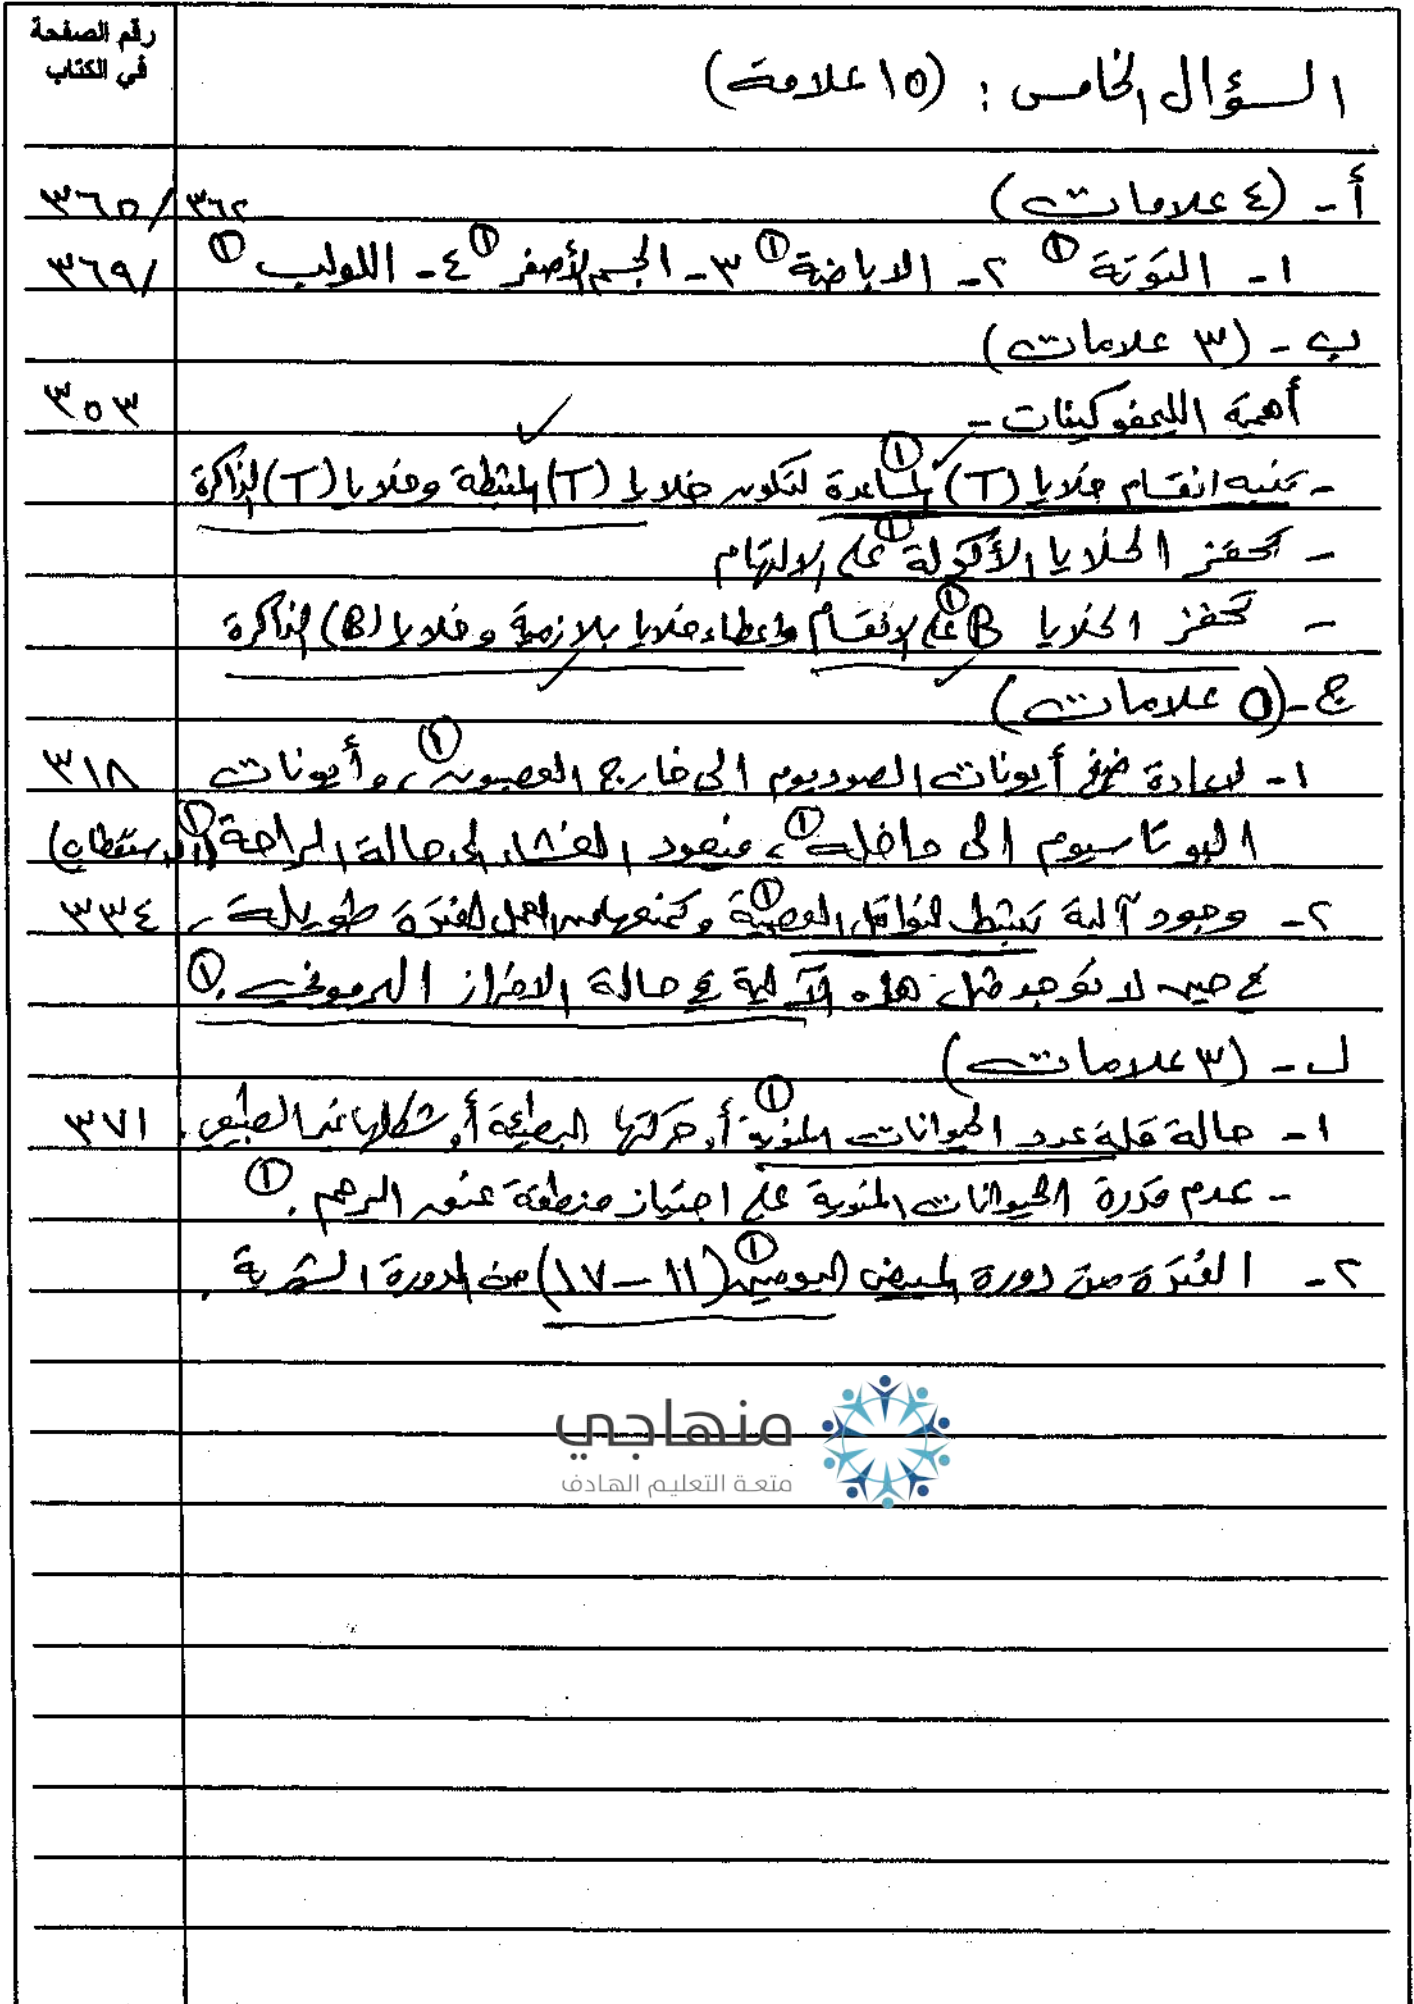 رقم الصفحة
في الكتاب
السؤال الخامس : (١٥ علامة)
أ - (٤ علامات) ٣٦٢ / ٣٦٥
١ - التوتة ① ٢ - الاباضة ① ٣ - الجسم الأصفر ① ٤ - اللولب ① / ٣٦٩
ب - (٣ علامات)
أهمية الليمفوكينات - ٣٥٣
- تنبه انقسام خلايا (T) المساعدة ① لتكون خلايا (T) المثبطة وخلايا (T) الذاكرة
- تحفز الخلايا الأكولة ① على الالتهام
- تحفز الخلايا B ① على الانقسام واعطاء خلايا بلازمية وخلايا (B) الذاكرة
ج - (٥ علامات)
١ - لإعادة ضخ أيونات الصوديوم الى خارج العصبون ①، وأيونات ٣١٨
البوتاسيوم الى داخله ①، فيعود الغشاء الى حالة الراحة ① (الاستقطاب)
٢ - وجود آلية تثبط النواقل العصبية ① وتمنعها من العمل لفترة طويلة ٣٣٤
في حين لا توجد مثل هذه الآلية في حالة الافراز الهرموني ①.
د - (٣ علامات)
١ - حالة قلة عدد الحيوانات المنوية ① أو حركتها البطيئة أو شكلها غير الطبيعي. ٣٧١
- عدم قدرة الحيوانات المنوية على اجتياز منطقة عنق الرحم. ①
٢ - الفترة من دورة المبيض اليومين ① (١١ - ١٧) من الدورة الشهرية.
منهاجي
متعة التعليم الهادف